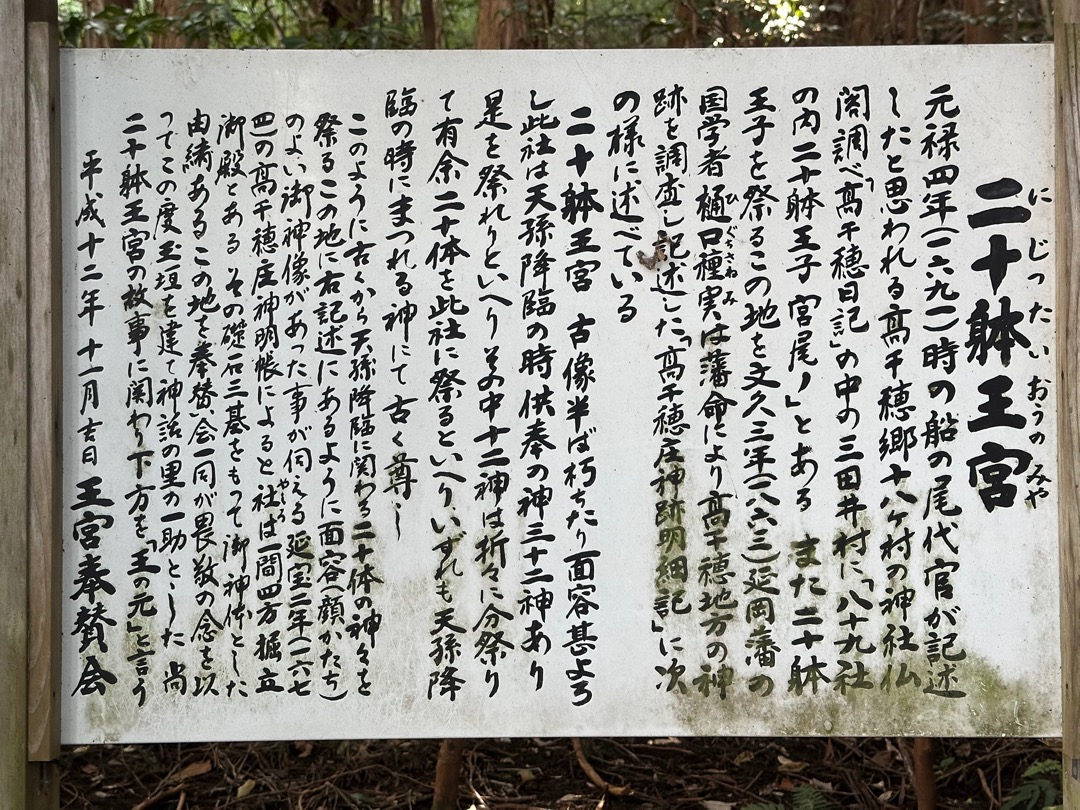 二十躰王宮
にじったいおうのみや
元禄四年(一六九一)時の船の尾代官が記述
したと思われる高千穂郷十八ヶ村の神社仏
閣調べ「高千穂日記」の中の三田井村に「八十九社
の内二十躰王子 宮尾ノ」とある また二十躰
王子を祭るこの地を文久三年(一八六三)延岡藩の
国学者樋口種実は藩命により高千穂地方の神
ひぐちさねみ
跡を調査し記述した「高千穂庄神跡明細記」に次
の様に述べている
二十躰王宮 古像半ば朽ちたり面容甚よろ
し此社は天孫降臨の時供奉の神三十二神あり
是を祭れりといへりその中十二神は折々に分祭り
て有余二十体を此社に祭るといへり、いずれも天孫降
臨の時にまつれる神にて古く尊し
このように古くから天孫降臨に関わる二十体の神々を
祭るこの地に右記述にあるように面容(顔かたち)
のよい御神像があった事が伺える延宝二年(一六七
四)の高千穂庄神明帳によると社ば一間四方掘立
やしろ
御殿とある その礎石三基をもって御神体とした
由緒あるこの地を奉賛会一同が畏敬の念を以
ってこの度玉垣を建て神話の里の一助とした 尚
二十躰王宮の故事に関わり下方を「王の元」と言う
平成十二年十一月吉日 王宮奉賛会